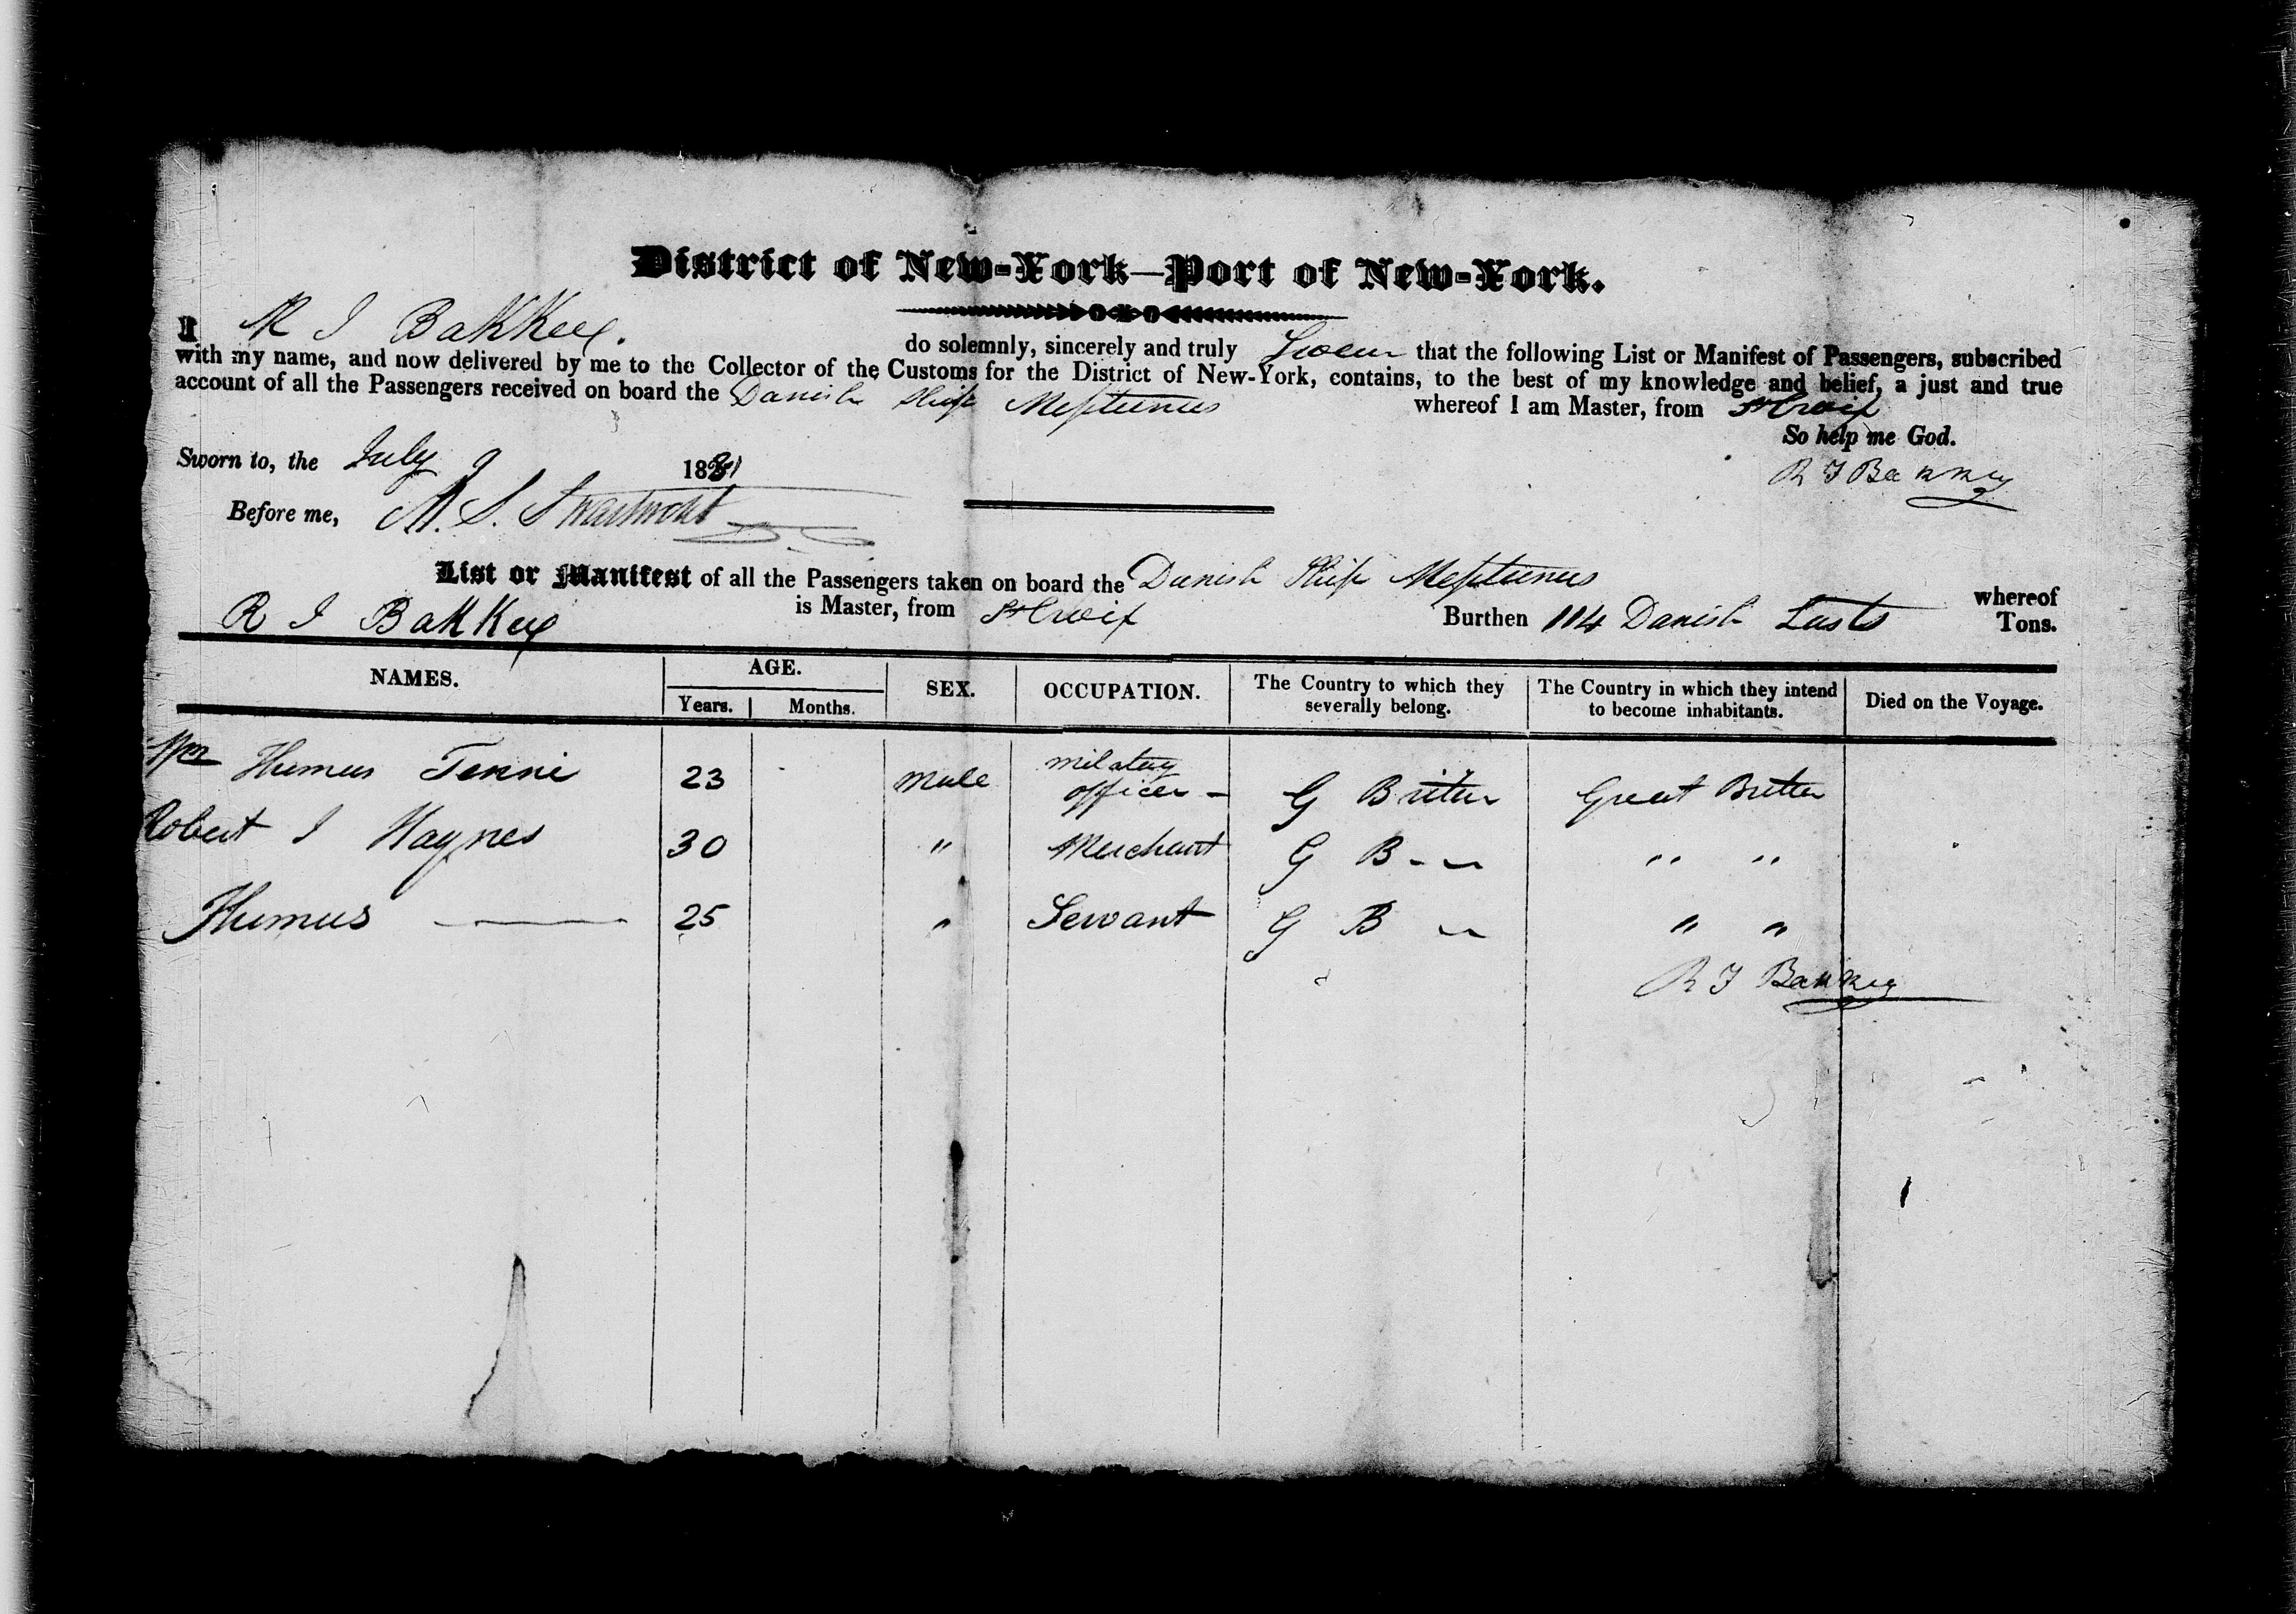 District of New-York—Port of New-York.
I R I Bakker. do solemnly, sincerely and truly Swear that the following List or Manifest of Passengers, subscribed
with my name, and now delivered by me to the Collector of the Customs for the District of New-York, contains, to the best of my knowledge and belief, a just and true
account of all the Passengers received on board the Danish Ship Neptunus whereof I am Master, from St Croix
So help me God.
Sworn to, the July 9 1831
Before me, M. S. Swartwout
List or Manifest of all the Passengers taken on board the Danish Ship Neptunus whereof
R I Bakker is Master, from St Croix Burthen 114 Danish Lasts Tons.
NAMES. AGE. SEX. OCCUPATION. The Country to which they severally belong. The Country in which they intend to become inhabitants. Died on the Voyage.
Years. Months.
Wm Thomas 23 Male military officer - G Britten Great Britten
Robert I Haynes 30 " Merchant G B - - " "
Thomas — 25 " Servant G B -- " "